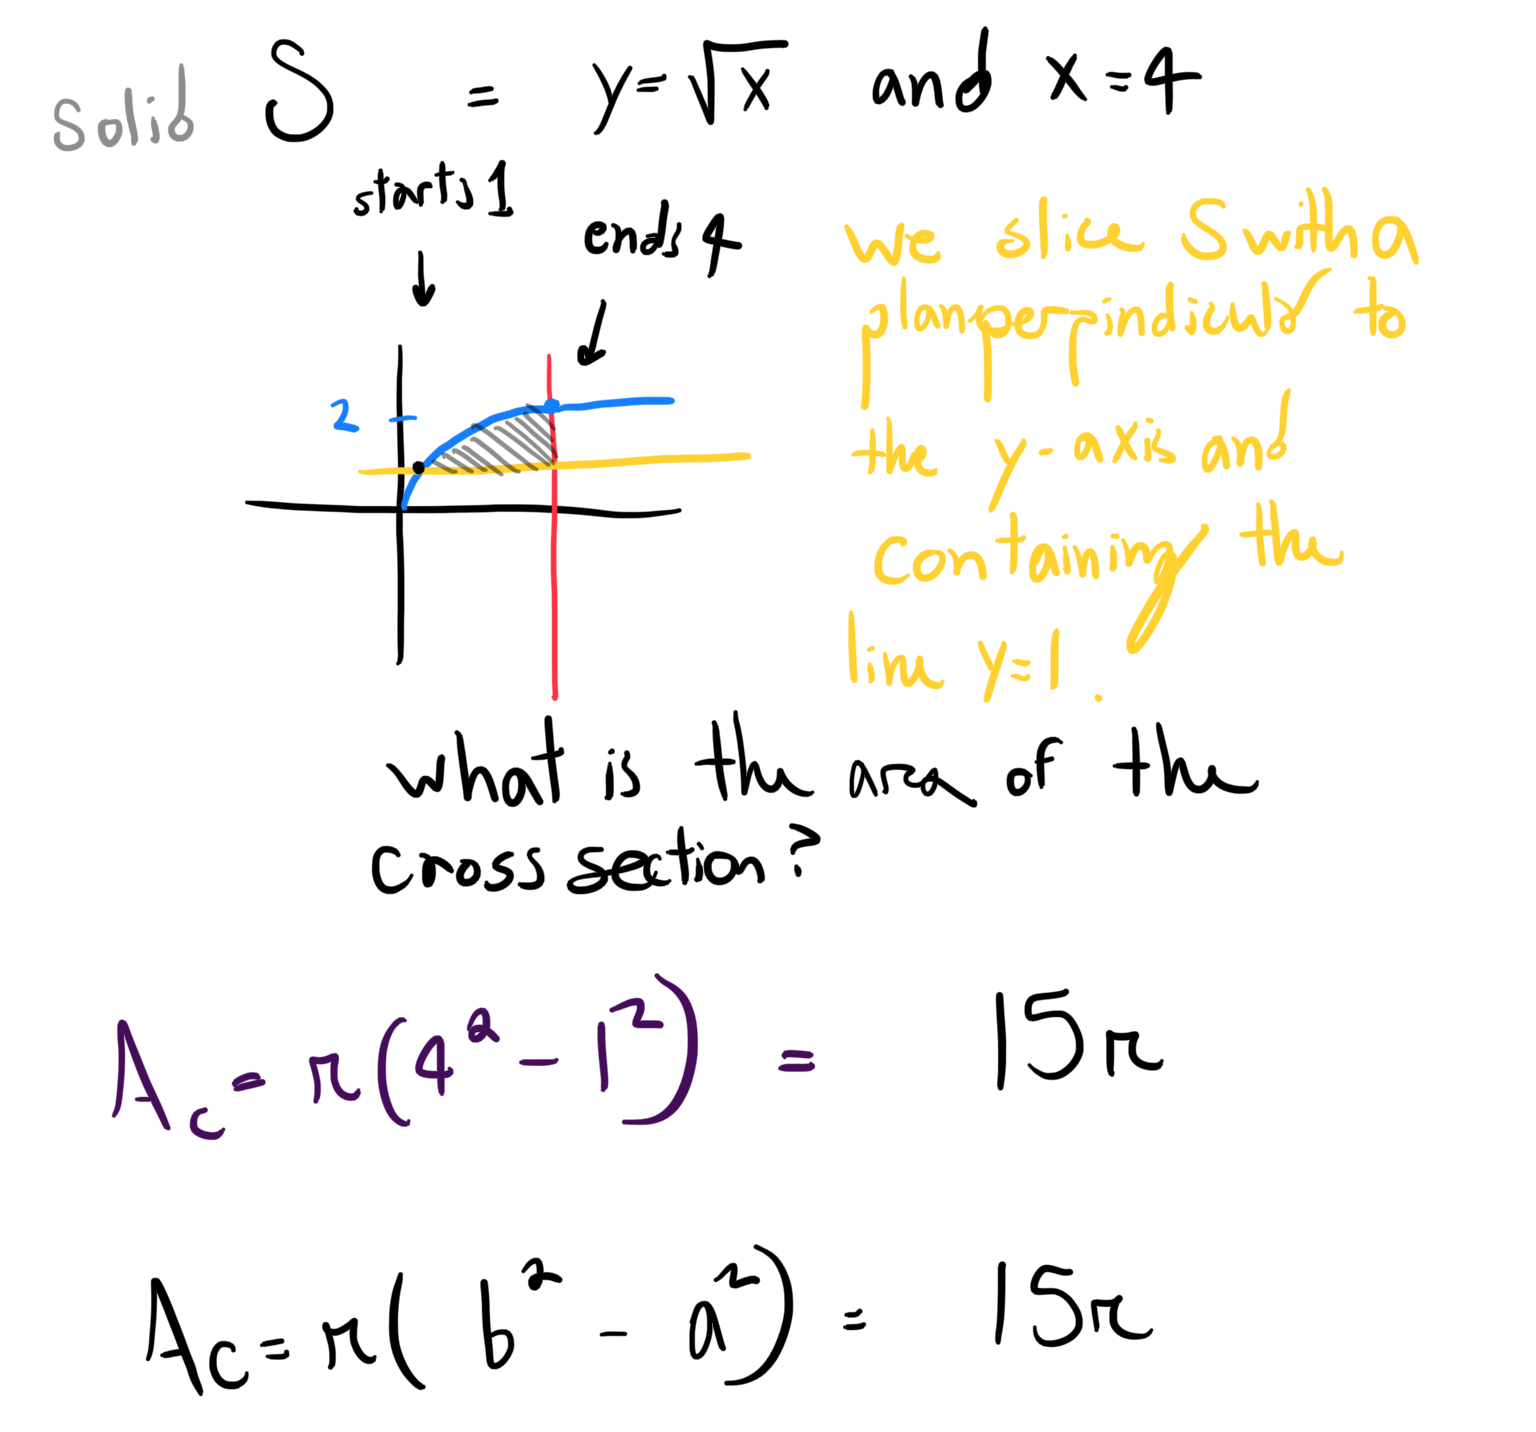 solid S = y=√x and x=4
starts 1
ends 4
we slice S with a
plan perpindiculr to
the y-axis and
containing the
line y=1.
2
what is the area of the
cross section?
A_c = π(4² - 1²) = 15π
A_c = π( b² - a²) = 15π